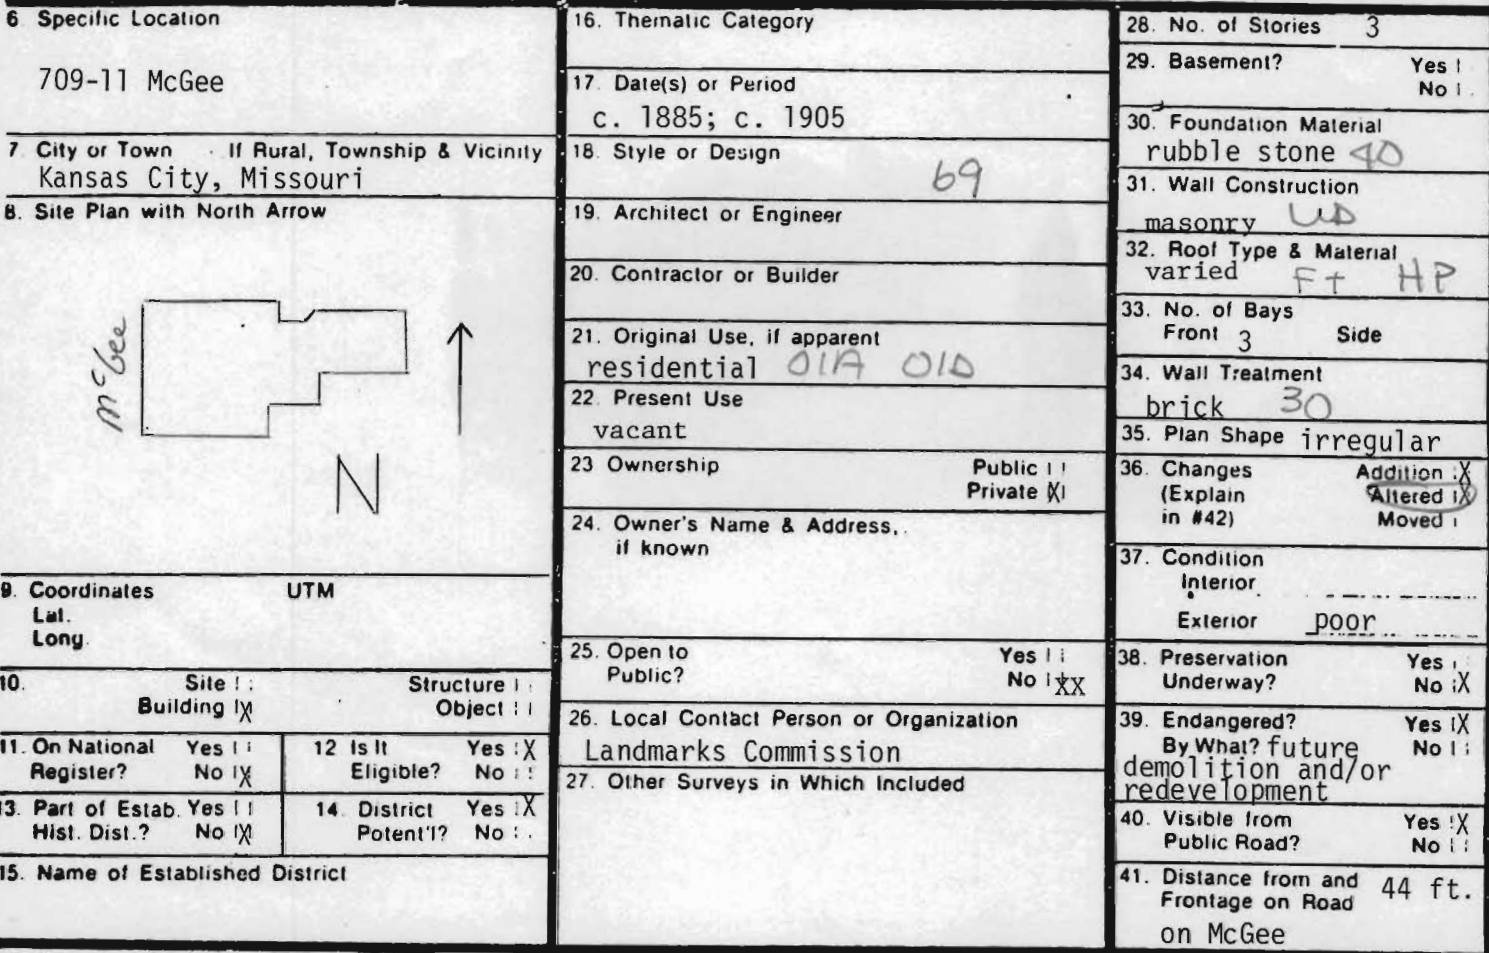 6 Specific Location
709-11 McGee
7 City or Town If Rural, Township & Vicinity
Kansas City, Missouri
8. Site Plan with North Arrow
McGee
N
9. Coordinates UTM
Lat.
Long.
10. Site Structure
Building X Object
11. On National Yes
Register? No X
12 Is It Yes X
Eligible? No
13. Part of Estab. Yes
Hist. Dist.? No X
14. District Yes X
Potent'l? No
15. Name of Established District
16. Thematic Category
17. Date(s) or Period
c. 1885; c. 1905
18. Style or Design
69
19. Architect or Engineer
20. Contractor or Builder
21. Original Use, if apparent
residential 01A 01D
22. Present Use
vacant
23 Ownership Public
Private X
24. Owner's Name & Address,
if known
25. Open to Yes
Public? No XX
26. Local Contact Person or Organization
Landmarks Commission
27. Other Surveys in Which Included
28. No. of Stories 3
29. Basement? Yes
No
30. Foundation Material
rubble stone 40
31. Wall Construction
masonry UD
32. Roof Type & Material
varied FT HP
33. No. of Bays
Front 3 Side
34. Wall Treatment
brick 30
35. Plan Shape irregular
36. Changes Addition X
(Explain Altered X
in #42) Moved
37. Condition
Interior
Exterior poor
38. Preservation Yes
Underway? No X
39. Endangered? Yes X
By What? future No
demolition and/or
redevelopment
40. Visible from Yes X
Public Road? No
41. Distance from and 44 ft.
Frontage on Road
on McGee